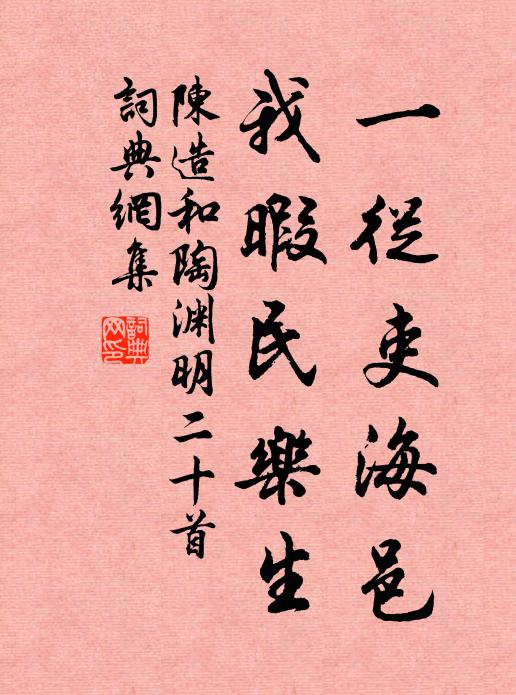 一從吏海邑
我暇民樂生
陳造和陶渊明二十首
詞典網集
詞典网印